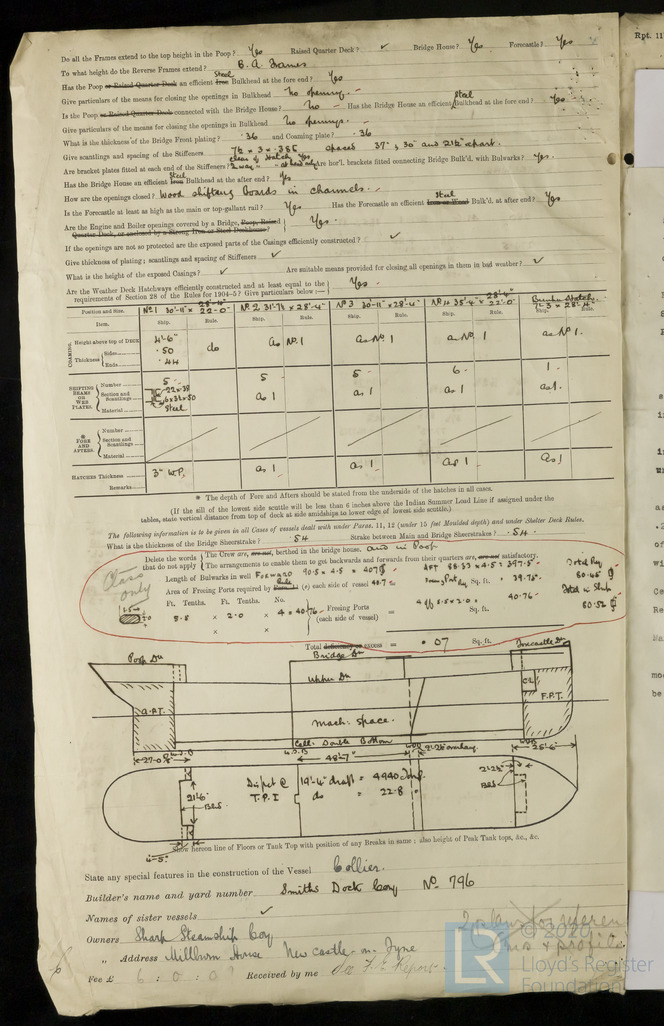 Do all the Frames extend to the top height in the Poop? Yes Raised Quarter Deck? ✓ Bridge House? Yes Forecastle? Yes
To what height do the Reverse Frames extend? B. A. Frames
Has the Poop or Raised Quarter Deck an efficient Iron Steel Bulkhead at the fore end? Yes
Give particulars of the means for closing the openings in Bulkhead No openings. –
Is the Poop or Raised Quarter Deck connected with the Bridge House? No – Has the Bridge House an efficient Steel Bulkhead at the fore end? Yes
Give particulars of the means for closing the openings in Bulkhead No openings. –
What is the thickness of the Bridge Front plating? ·36 and Coaming plate? ·36
Give scantlings and spacing of the Stiffeners 7½ × 3 × ·386 spaced 37" & 30" and 21½" apart.
Are bracket plates fitted at each end of the Stiffeners? hor'l. brackets fitted connecting Bridge Bulk'd. with Bulwarks? Yes.
Has the Bridge House an efficient Iron Steel Bulkhead at the after end? Yes
How are the openings closed? Wood shifting boards in channels. –
Is the Forecastle at least as high as the main or top-gallant rail? Yes Has the Forecastle an efficient Iron or Wood Steel Bulk'd. at after end? Yes
Are the Engine and Boiler openings covered by a Bridge, Poop, Raised
Quarter Deck, or enclosed by a Strong Iron or Steel Deckhouse? Yes.
If the openings are not so protected are the exposed parts of the Casings efficiently constructed? ✓
Give thickness of plating; scantlings and spacing of Stiffeners ✓
What is the height of the exposed Casings? ✓ Are suitable means provided for closing all openings in them in bad weather? ✓
Are the Weather Deck Hatchways efficiently constructed and at least equal to the
requirements of Section 28 of the Rules for 1904-5? Give particulars below :— Yes.
Position and Size. No 1 30'-11" × 28'-4" 22'-0" No 2 31'-7½ × 28'-4" No 3 30'-11" × 28'-4" No 4 35'-4" × 28'-4" 22'-0" Bunker Hatch 7'-3" × 28'-4"
Item. Ship. Rule. Ship. Rule. Ship. Rule. Ship. Rule. Ship. Rule.
COAMING Height above top of DECK 4'-6" do as No. 1 as No. 1 as No. 1 as No 1.
Thickness Sides ·50
Ends ·44
SHIFTING BEAMS OR WEB PLATES. Number 5 – 5 – 5 – 6 – 1 –
Section and Scantlings as 1 as 1 as 1 as 1.
Material Steel
* FORE AND AFTERS. Number
Section and Scantlings
Material
HATCHES Thickness 3" W.P. as 1 as 1 as 1 as 1
Remarks
* The depth of Fore and Afters should be stated from the underside of the hatches in all cases.
(If the sill of the lowest side scuttle will be less than 6 inches above the Indian Summer Load Line if assigned under the
tables, state vertical distance from top of deck at side amidships to lower edge of lowest side scuttle.)
The following information is to be given in all Cases of vessels dealt with under Paras. 11, 12 (under 15 feet Moulded depth) and under Shelter Deck Rules.
What is the thickness of the Bridge Sheerstrake? ·54 Strake between Main and Bridge Sheerstrakes? ·54
Delete the words that do not apply The Crew are, are not, berthed in the bridge house, and in Poop
The arrangements to enable them to get backwards and forwards from their quarters are, are not satisfactory.
Class only
Length of Bulwarks in well Forward 90.5 × 4.5 = 407 Aft 88.33 × 4.5 = 397.5 Total Req
Area of Freeing Ports required by Rule each side of vessel 40.7 Sq. ft. 39.75 80.45
Ft. Tenths. Ft. Tenths. No.
5.8 × 2.0 × 4 = 40.76 Freeing Ports = 40.76 Sq. ft. Total in Ship
× × (each side of vessel) 80.52
Total deficiency or excess = ·07 Sq. ft.
Poop Dk Bridge Dk Forecastle Dk
Upper Dk
A.P.T. Mach: space. C.L. F.P.T.
Cell: Double Bottom
27-0 48'-7" 25'-6"
21'-6" B&S Displ @ 19'-4" draft = 4940 tons. B&S
T.P.I do = 22.8
4-5"
Show hereon line of Floors or Tank Top with position of any Breaks in same; also height of Peak Tank tops, &c., &c.
State any special features in the construction of the Vessel Collier.
Builder's name and yard number Smiths Dock Coy No 796
Names of sister vessels ✓
Owners Sharp Steamship Coy
„ Address Milburn House Newcastle-on-Tyne
Fee £ 6 : 0 : 0 Received by me
© 2020
Lloyd's Register
Foundation
LR
Rpt. 11